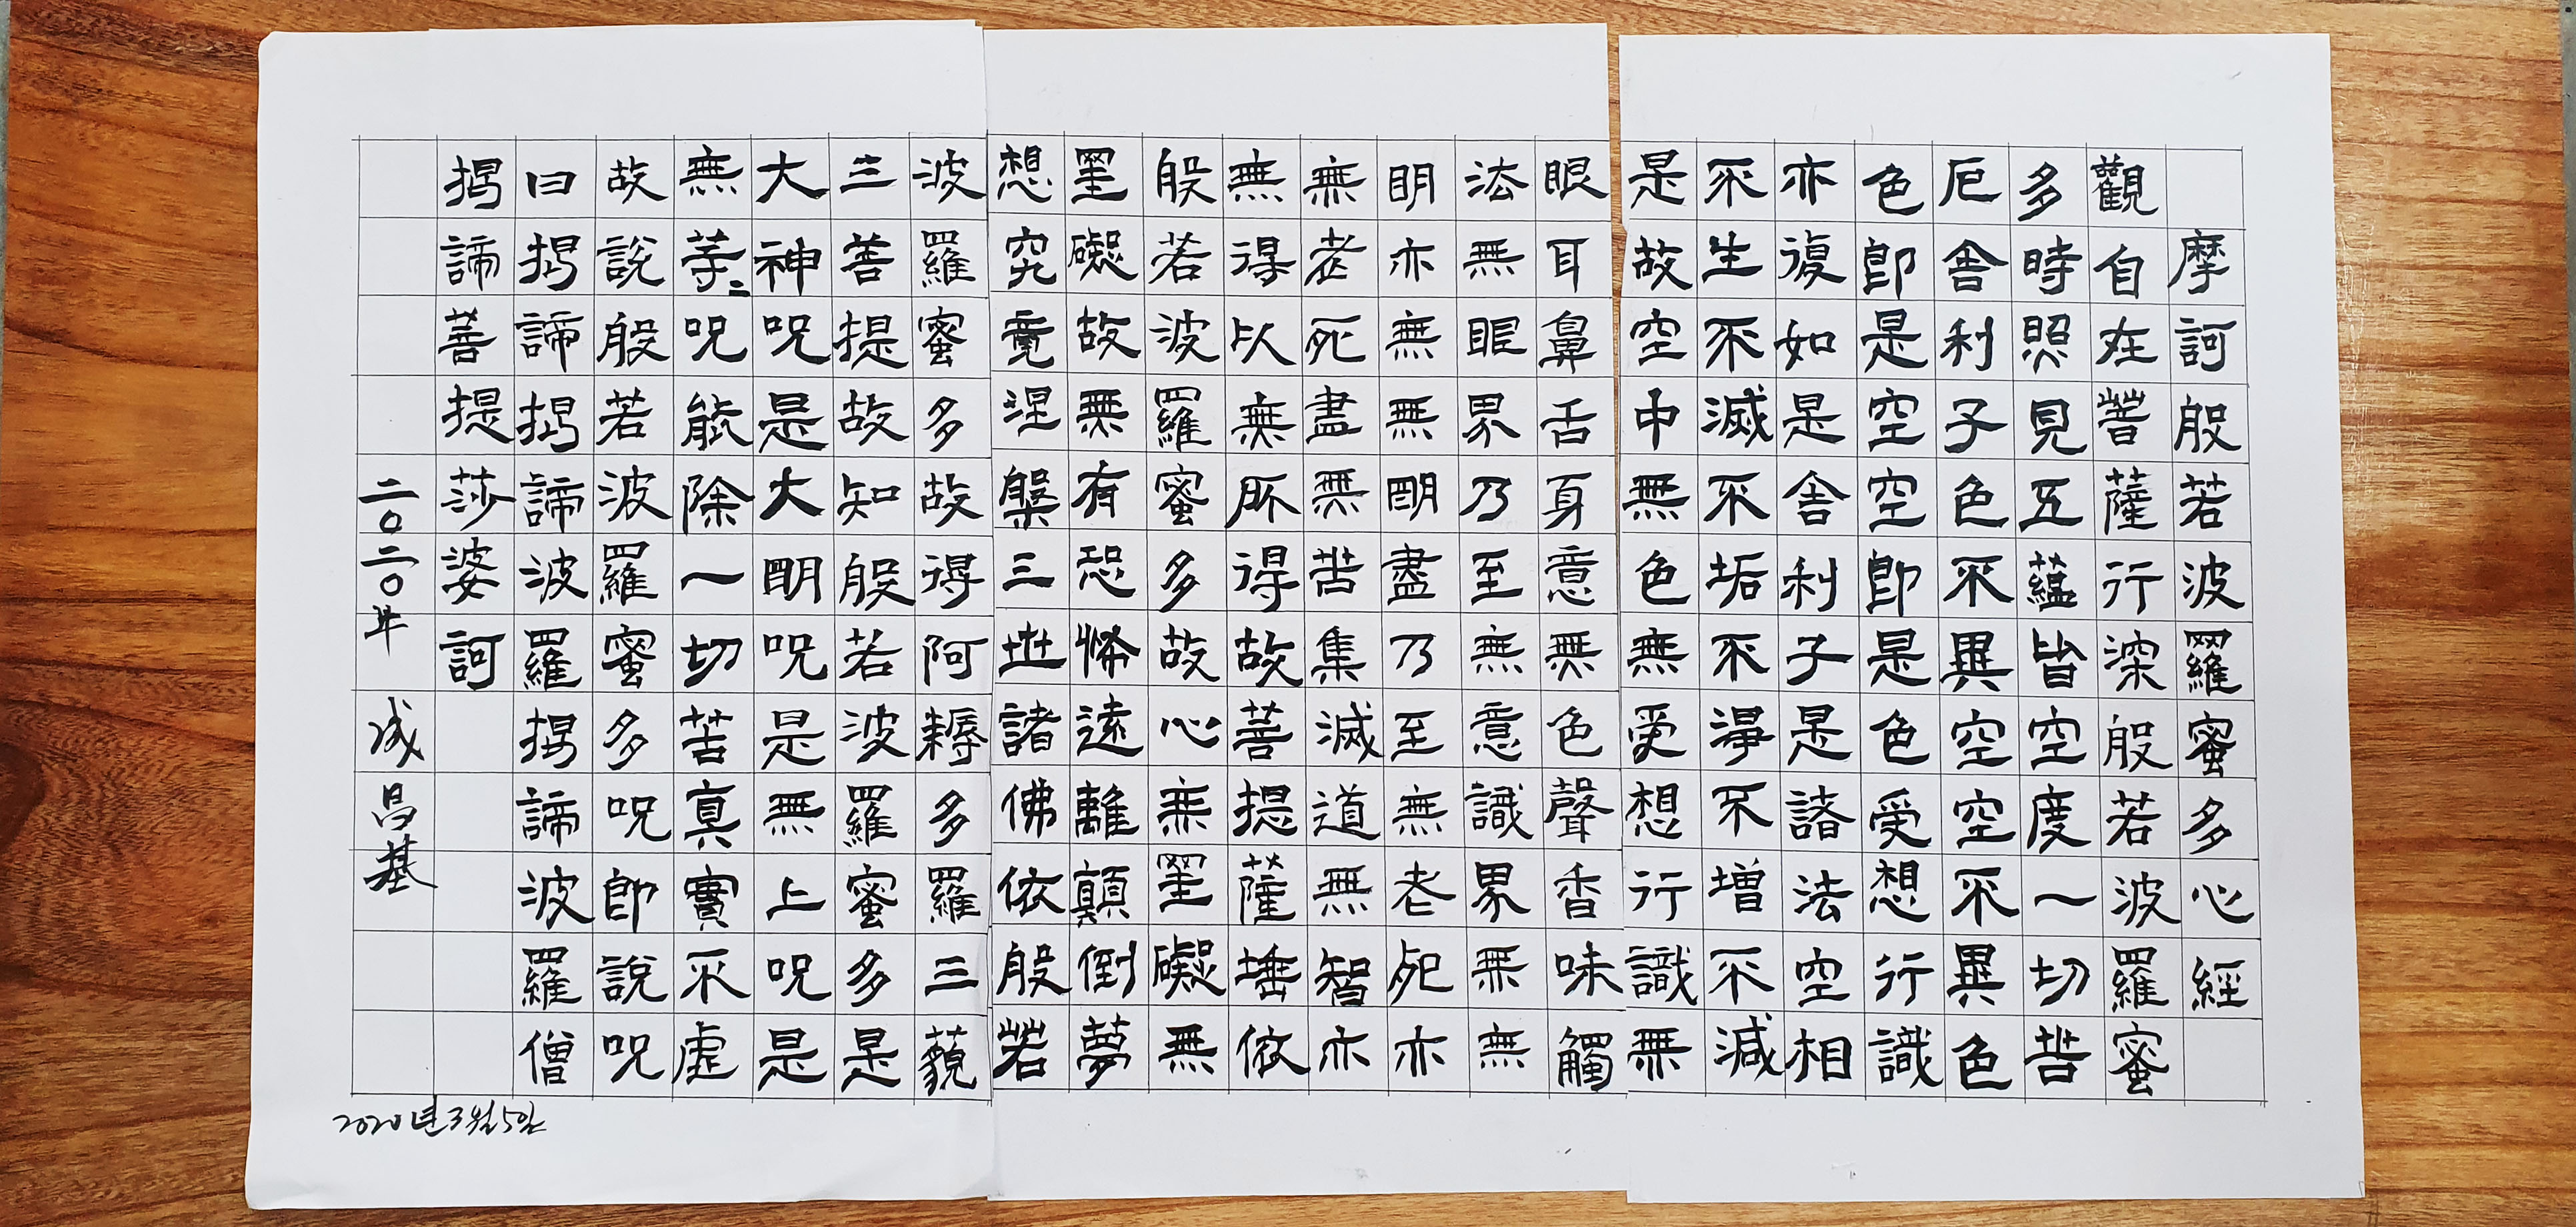 摩訶般若波羅蜜多心經
觀自在菩薩行深般若波羅蜜
多時照見五蘊皆空度一切苦
厄舍利子色不異空空不異色
色即是空空即是色受想行識
亦復如是舍利子是諸法空相
不生不滅不垢不淨不增不減
是故空中無色無受想行識無
眼耳鼻舌身意無色聲香味觸
法無眼界乃至無意識界無無
明亦無無明盡乃至無老死亦
無老死盡無苦集滅道無智亦
無得以無所得故菩提薩埵依
般若波羅蜜多故心無罣礙無
罣礙故無有恐怖遠離顛倒夢
想究竟涅槃三世諸佛依般若
波羅蜜多故得阿耨多羅三藐
三菩提故知般若波羅蜜多是
大神呪是大明呪是無上呪是
無等〻呪能除一切苦真實不虛
故說般若波羅蜜多呪即說呪
曰揭諦揭諦波羅揭諦波羅僧
揭諦菩提莎婆訶
二〇二〇年 成昌基
2020년 3월 5일